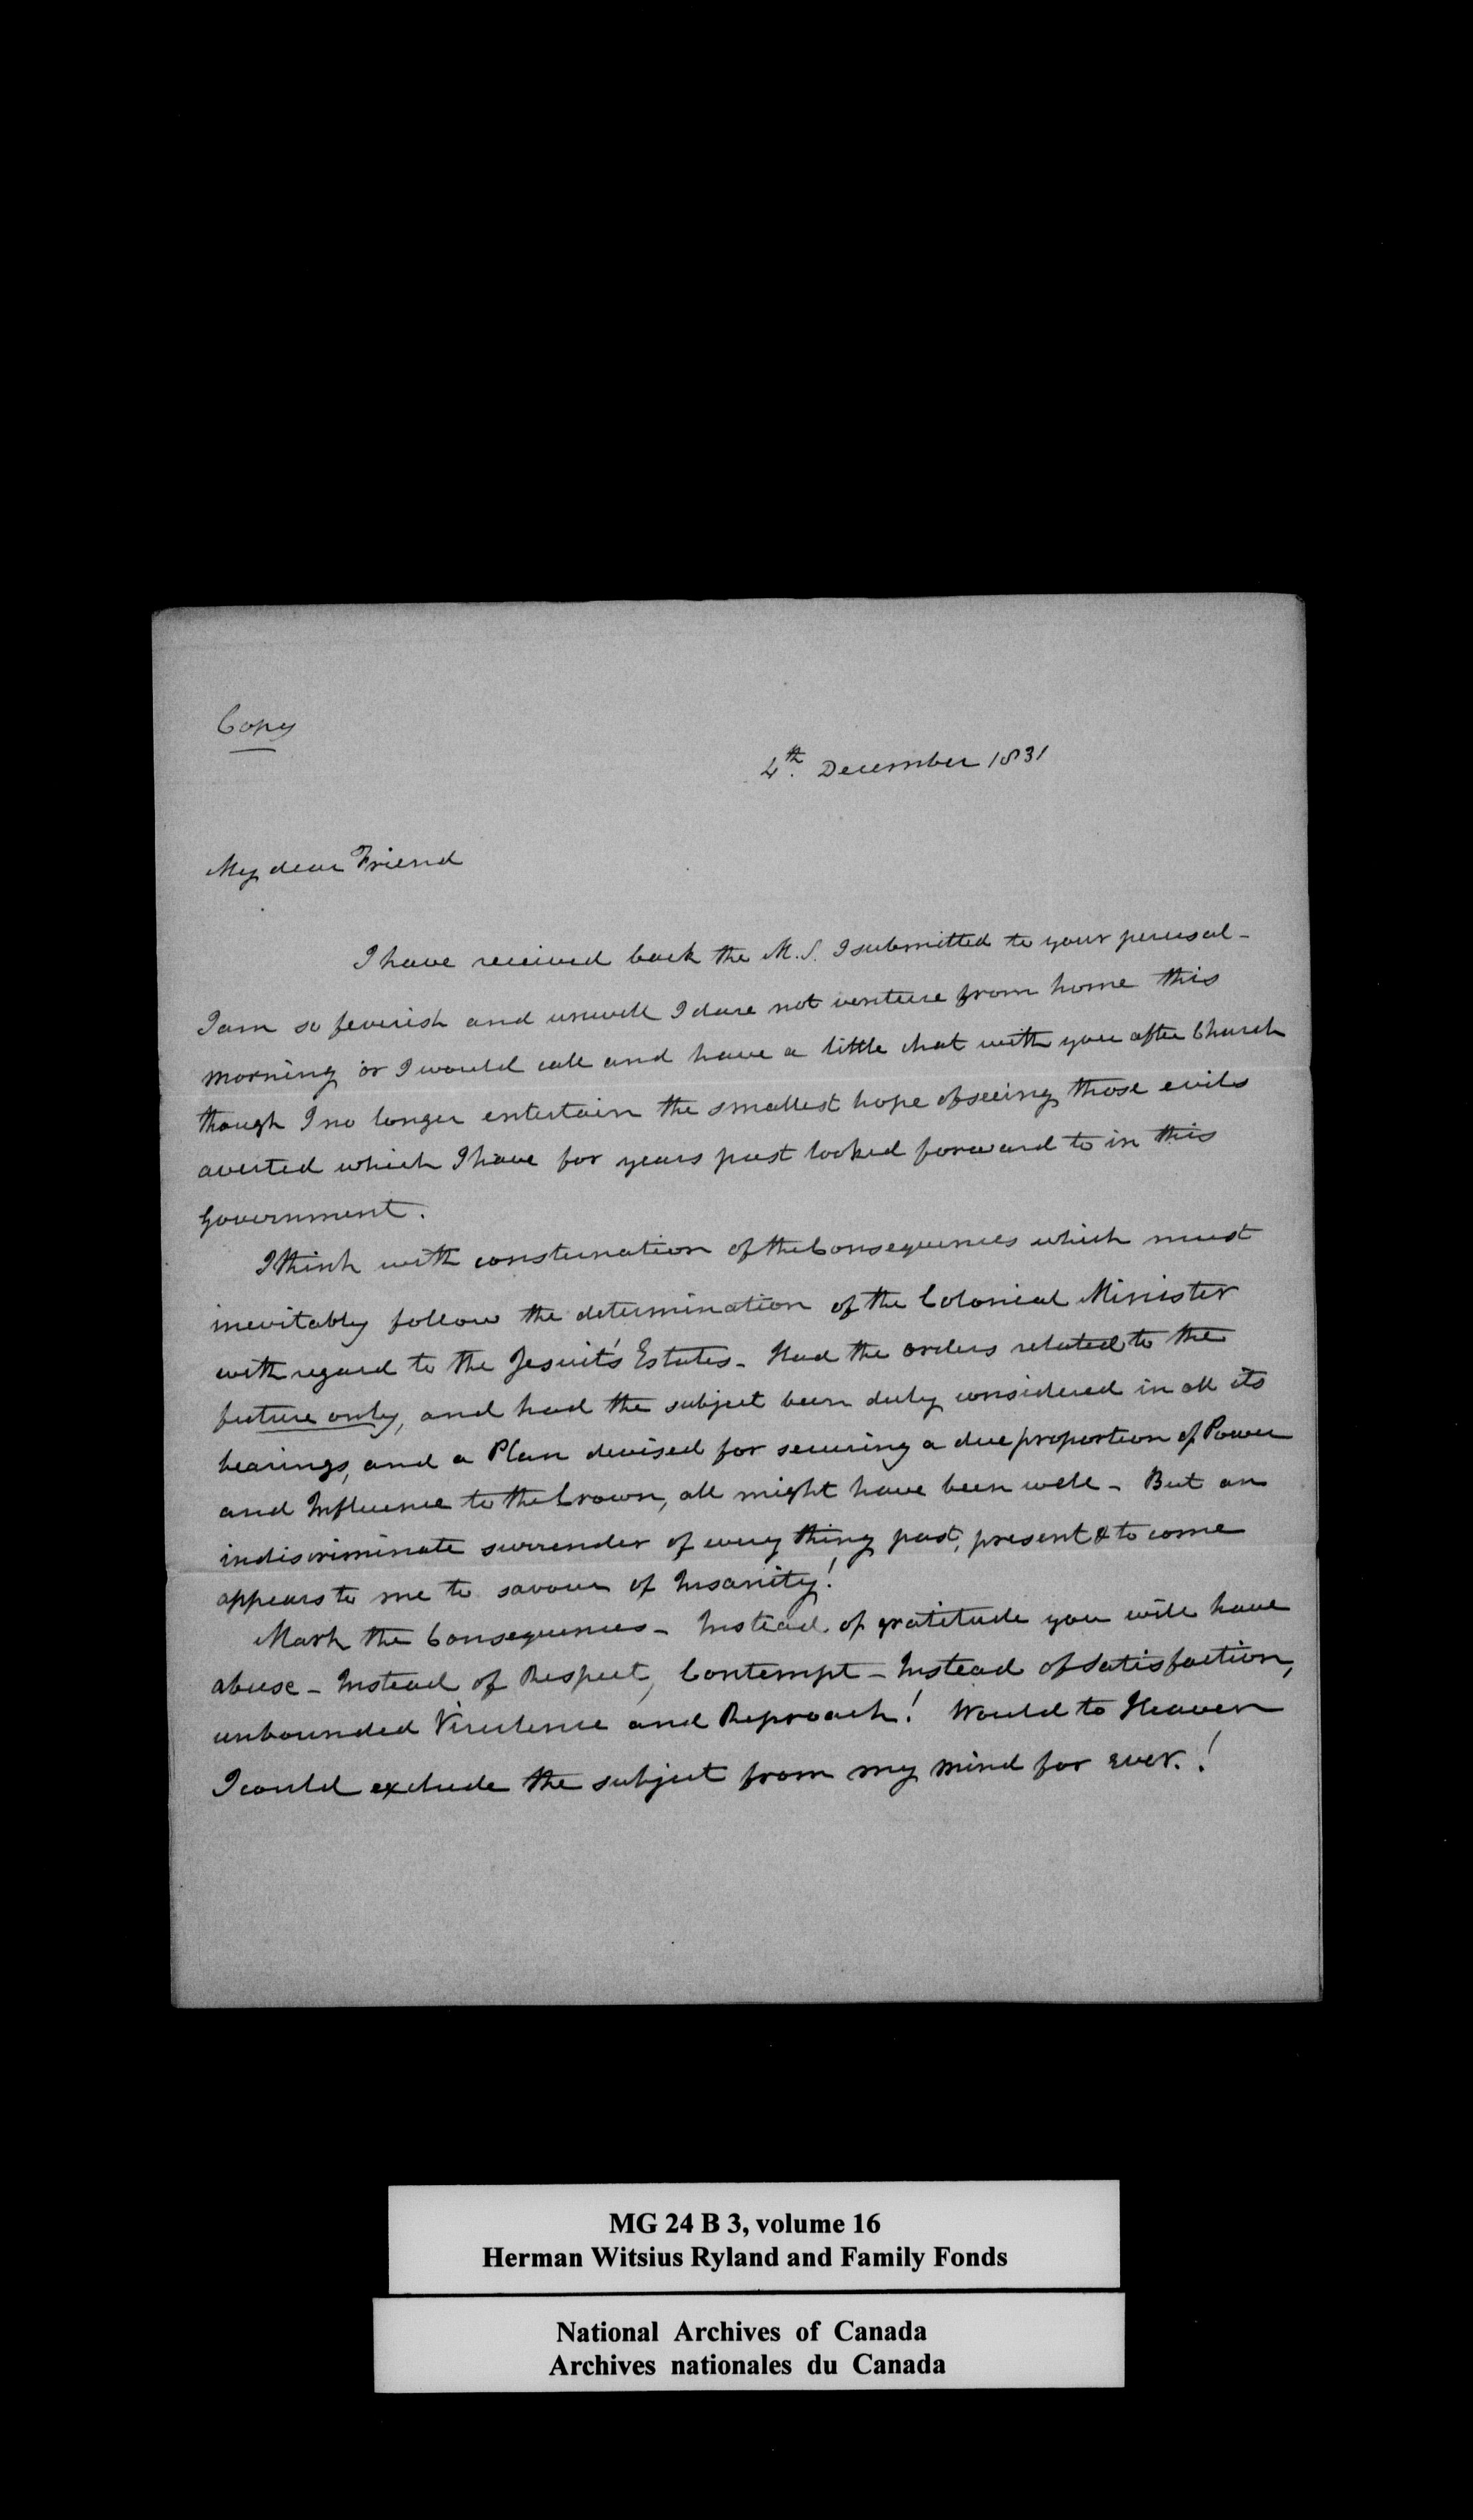 Copy
4th. December 1831
My dear Friend
I have received back the M.S. I submitted to your perusal -
I am so feverish and unwell I dare not venture from home this
morning or I would call and have a little chat with you after Church
though I no longer entertain the smallest hope of seeing those evils
averted which I have for years past looked forward to in this
Government.
I think with consternation of the Consequences which must
inevitably follow the determination of the Colonial Minister
with regard to the Jesuit's Estates - Had the orders related to the
future only, and had the subject been duly considered in all its
bearings, and a Plan devised for securing a due proportion of Power
and Influence to the Crown, all might have been well - But an
indiscriminate surrender of every thing past, present & to come
appears to me to savour of Insanity!
Mark the Consequences - Instead of gratitude you will have
abuse - Instead of Respect, Contempt - Instead of Satisfaction,
unbounded Virulence and Reproach! Would to Heaven
I could exclude the subject from my mind for ever.!
MG 24 B 3, volume 16
Herman Witsius Ryland and Family Fonds
National Archives of Canada
Archives nationales du Canada